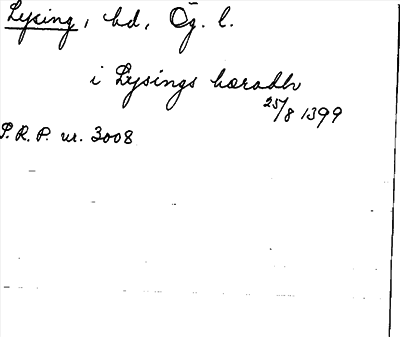 Lysing, hd, Ög. l.
i Lysings hæradh
25/8 1399
P. R. P. nr. 3008